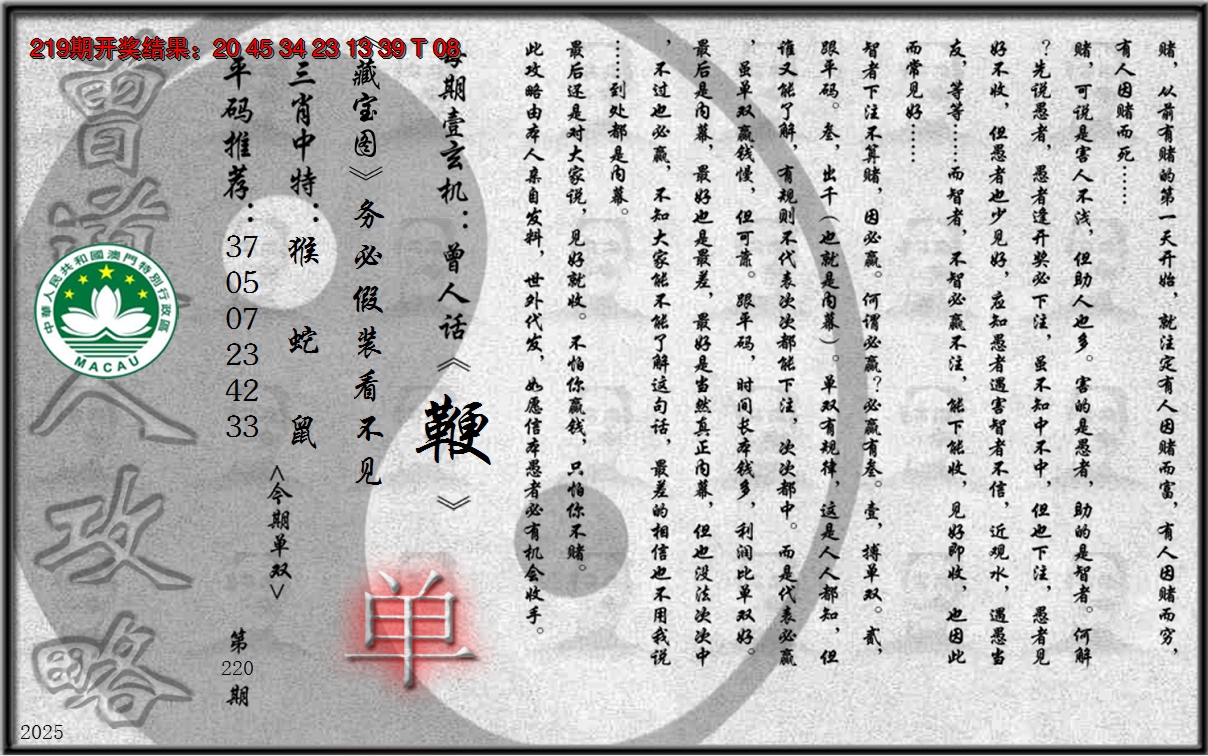 219期开奖结果：20 45 34 23 13 39 T 08
赌，从前有赌的第一天开始，就注定有人因赌而富，有人因赌而穷，
有人因赌而死……
赌，可说是害人不浅，但助人也多。害的是愚者，助的是智者。何解
？先说愚者，愚者逢开奖必下注，虽不知中不中，但也下注，愚者见
好不收，但愚者也少见好，应知愚者遇害智者不信，近观水，遇愚当
友，等等……而智者，不智必赢不注，能下能收，见好即收，也因此
而常见好……
智者下注不算赌，因必赢。何谓必赢？必赢有叁。壹，搏单双。贰，
跟平码。叁，出千（也就是内幕）。单双有规律，这是人人都知，但
谁又能了解，有规则不代表次次都能下注，次次都中。而是代表必赢
，虽单双赢钱慢，但可靠。跟平码，时间长本钱多，利润比单双好。
最后是内幕，最好也是最差，最好是当然真正内幕，但也没法次次中
，不过也必赢，不知大家能不能了解这句话，最差的相信也不用我说
……到处都是内幕。
最后还是对大家说，见好就收。不怕你赢钱，只怕你不赌。
此攻略由本人亲自发料，世外代发，如愿信本愚者必有机会收手。
每期壹玄机：曾人话《鞭》
《藏宝图》务必假装看不见
单
三肖中特：猴 蛇 鼠
<今期单双>
平码推荐：
37
05
07
23
42
33
第
220
期
曾道人攻略
中華人民共和國澳門特別行政區
MACAU
2025